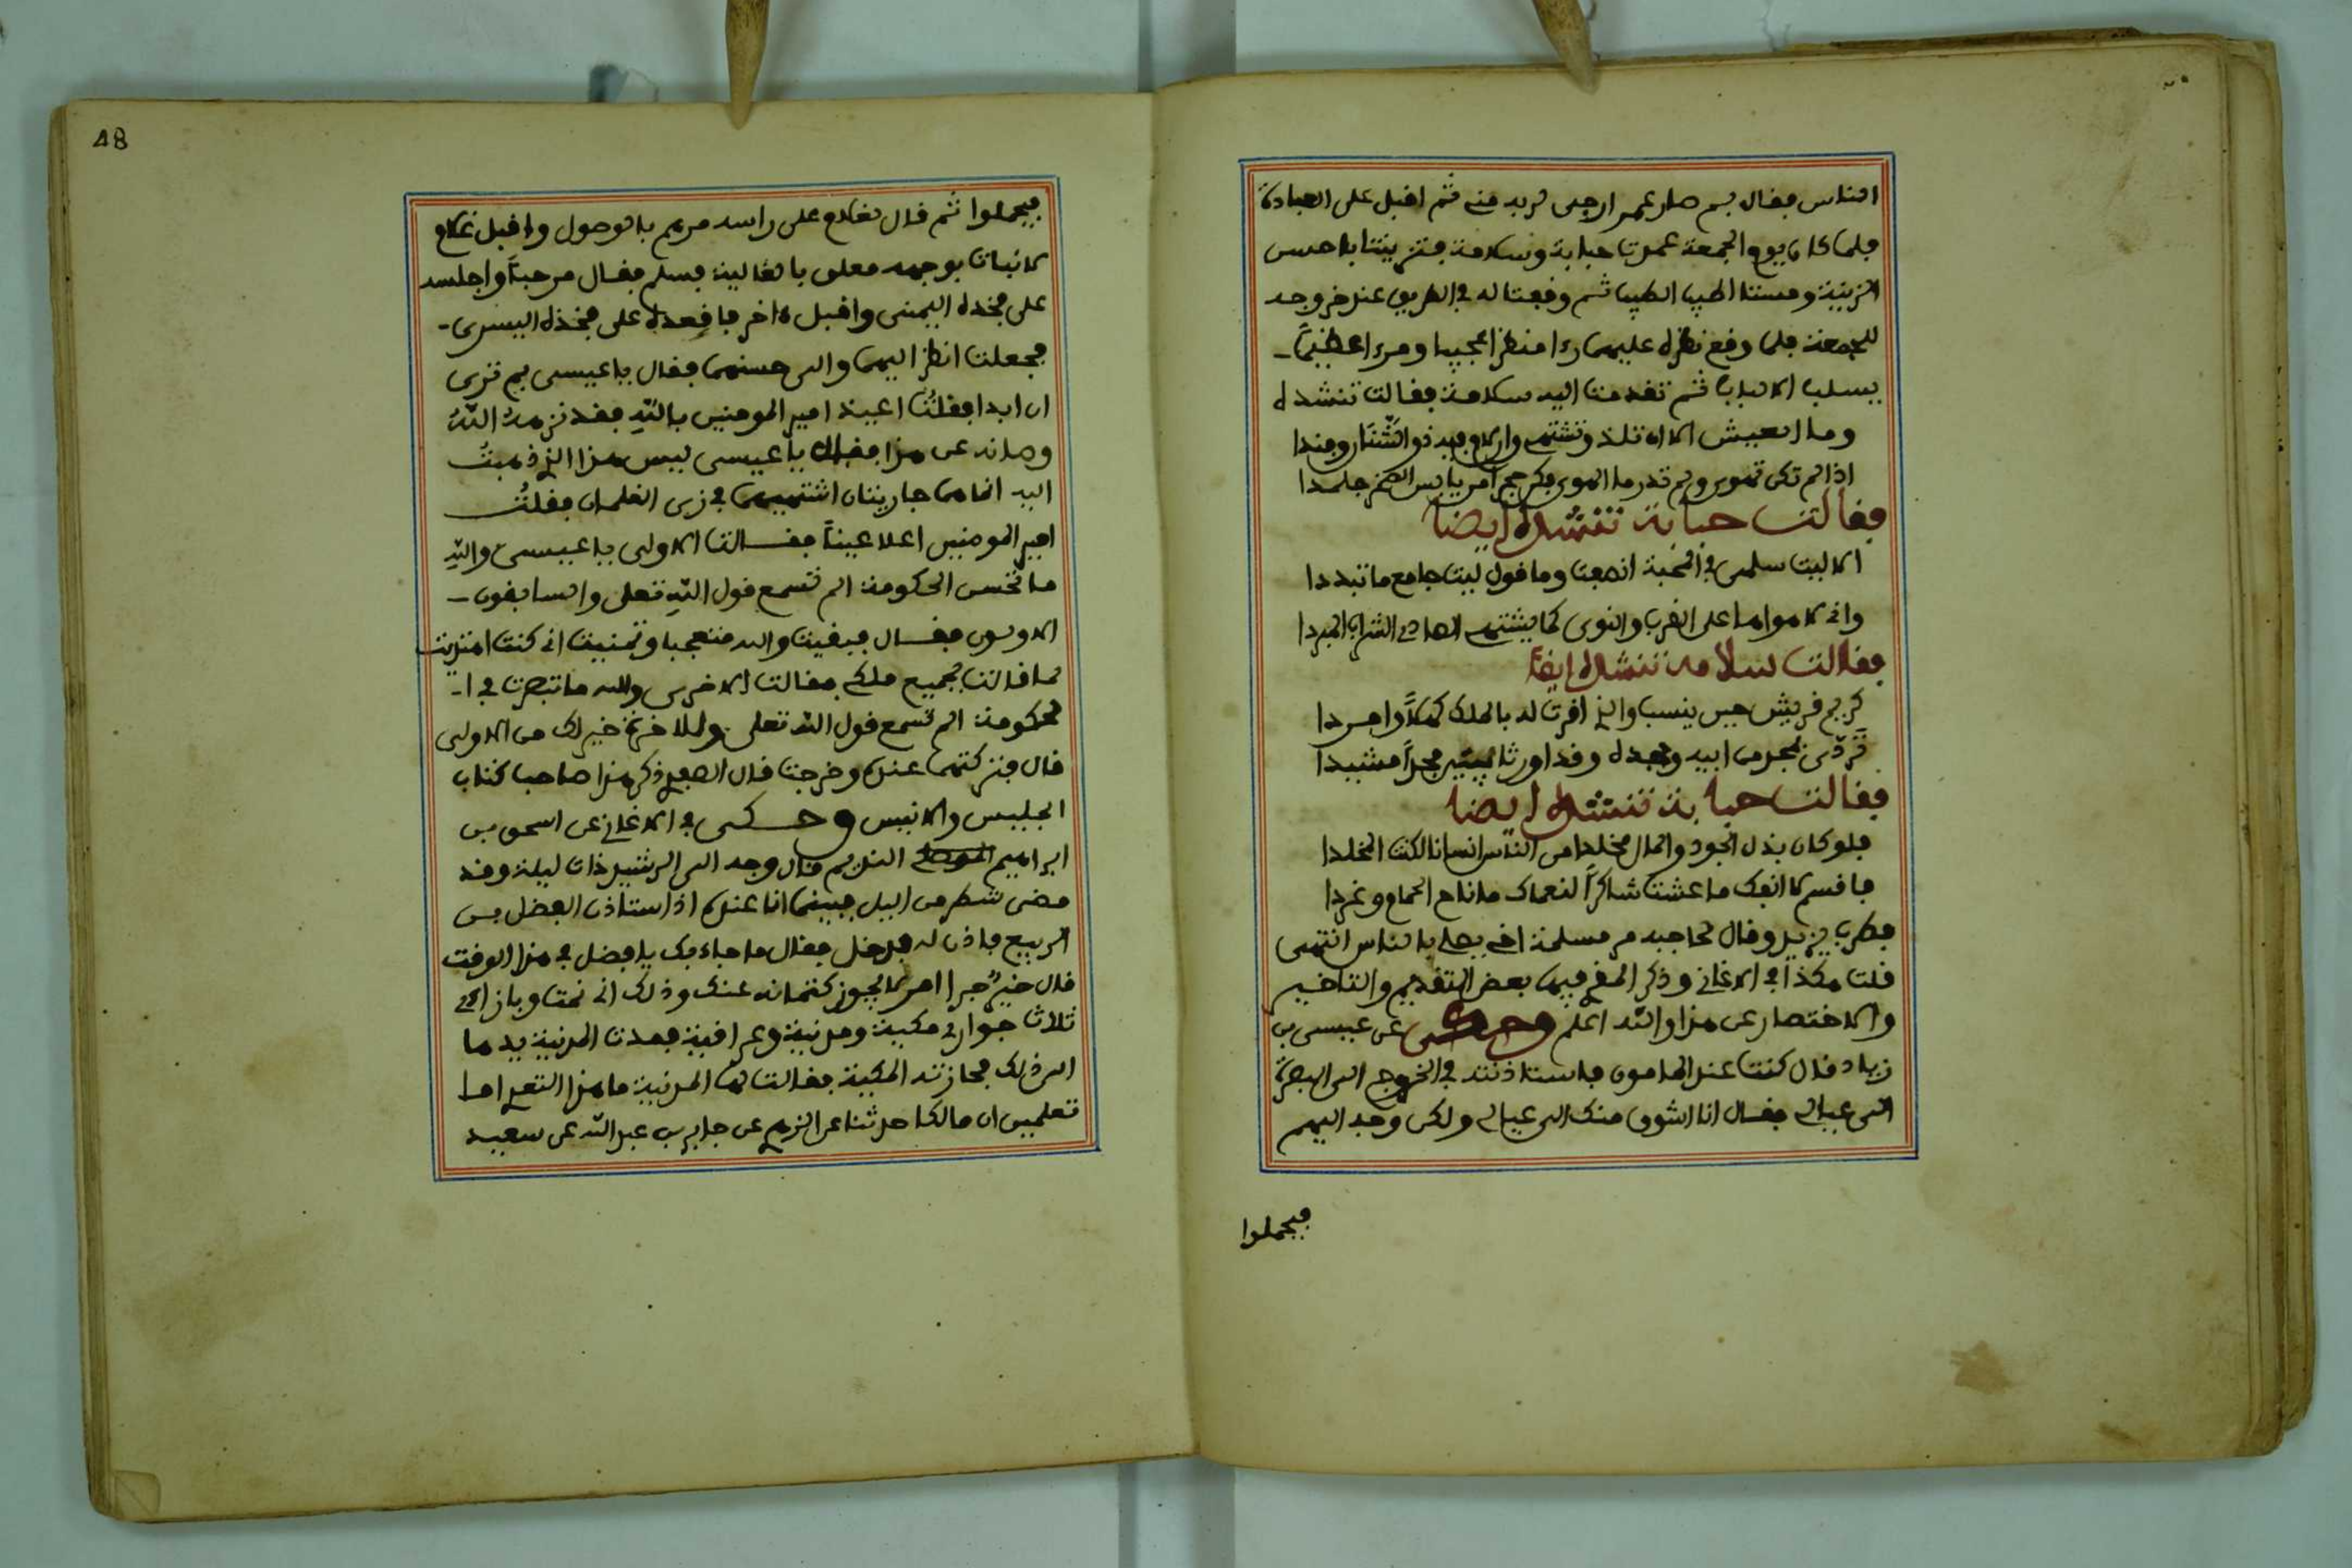 الناس فقال بم صار عمر ارجى لربه مني ثم اقبل على العبادة
فلما كان يوم الجمعة عمدت حبابة وسلامة فتزينتا باحسن
الزينة ومستا اطيب الطيب ثم وقفتا له في الطريق عند خروجه
للجمعة فلما وقع نظره عليهما رءا منظرا عجيبا ومرءا عظيما
يسلب الالباب ثم تقدمت اليه سلامة فقالت تنشده
وما العيش الا ان تلذ وتشتهي وان لام فيه ذو الشنار وفندا
اذا لم تكن تهوى ولم تدر ما الهوى فكن حجرا من يابس الصخر جلمدا
فقالت حبابة تنشده ايضا
الا ليت سلمى في المحبة انصفت وما قول ليت جامع ما تبددا
واني لاهواها على القرب والنوى كما يشتهي الصادي الشراب المبردا
فقالت سلامة تنشده ايضا
كريم قريش حين ينسب والذي اقرت له بالملك كهلا وامردا
تردى بمجد من ابيه وجده وقد اورثا مجدا مشيدا
فقالت حبابة تنشده ايضا
فلو كان بذل الجود والمال مخلدا من الناس انسانا لكنت المخلدا
فاقسم لا انفك ما عشت شاكرا لنعماك ما ناح الحمام وغردا
فطرب يزيد وقال لحاجبه مر مسلمة اخي يصلي بالناس انتهى
قلت هكذا في الاغاني وذكر المغ فيها بعض التقديم والتاخير
والاختصار عن هذا والله اعلم وحكى عن عيسى بن
زياد قال كنت عند المامون فاستاذنته في الخروج الى البصرة
الى عيالي فقال انا اشوق منك الى عيالي ولكن وجه اليهم
فيحملوا
48
فيحملوا ثم قال لغلام على راسه مرهم بالوصول واقبل غلام
كانبات بوجهه معلق بالغالية فسلم فقال مرحبا واجلسه
على فخده اليمنى واقبل ءاخر فاقعده على فخذه اليسرى
فجعلت انظر اليهما والى حسنهما فقال يا عيسى بم ترى
ان ابدا فقلت اعيذ امير المومنين بالله فقد نزهه الله
وصانه عن هذا فقال يا عيسى ليس هذا الذي ذهبت
اليه انما هما جاريتان اشتهيتهما في زي الغلمان فقلت
امير المومنين اعلا عينا فقالت الاولى يا عيسى والله
ما تحسن الحكومة الم تسمع قول الله تعلى والسابقون
الاولون فقال فبقيت والله متعجبا وتمنيت اني كنت اهتديت
لما قالت بجميع ملكي فقالت الاخرى والله ما تبصرت في ا
لحكومة الم تسمع قول الله تعلى وللاخرة خير لك من الاولى
قال فتركتهما عنده وخرجت قال الصفدي ذكر هذا صاحب كتاب
الجليس والانيس وحكى في الاغاني عن اسحق بن
ابراهيم الموصلي النديم قال وجه الى الرشيد ذات ليلة وقد
مضى شطر من اليل فبينما انا عنده اذ استاذن الفضل بن
الربيع فاذن له فدخل فقال ما جاء بك يا فضل في هذا الوقت
قال خير جرا امر لا يجوز كتمانه عنك وذلك اني نمت وبازاءي
ثلاث جواري مكية ومدنية وعراقية فمدت المدنية يدها
الى ذلك فحازته المكية فقالت لها المدنية ما هذا التعدي اما
تعلمين ان مالكا حدثنا عن الزهري عن جابر بن عبد الله عن سعيد